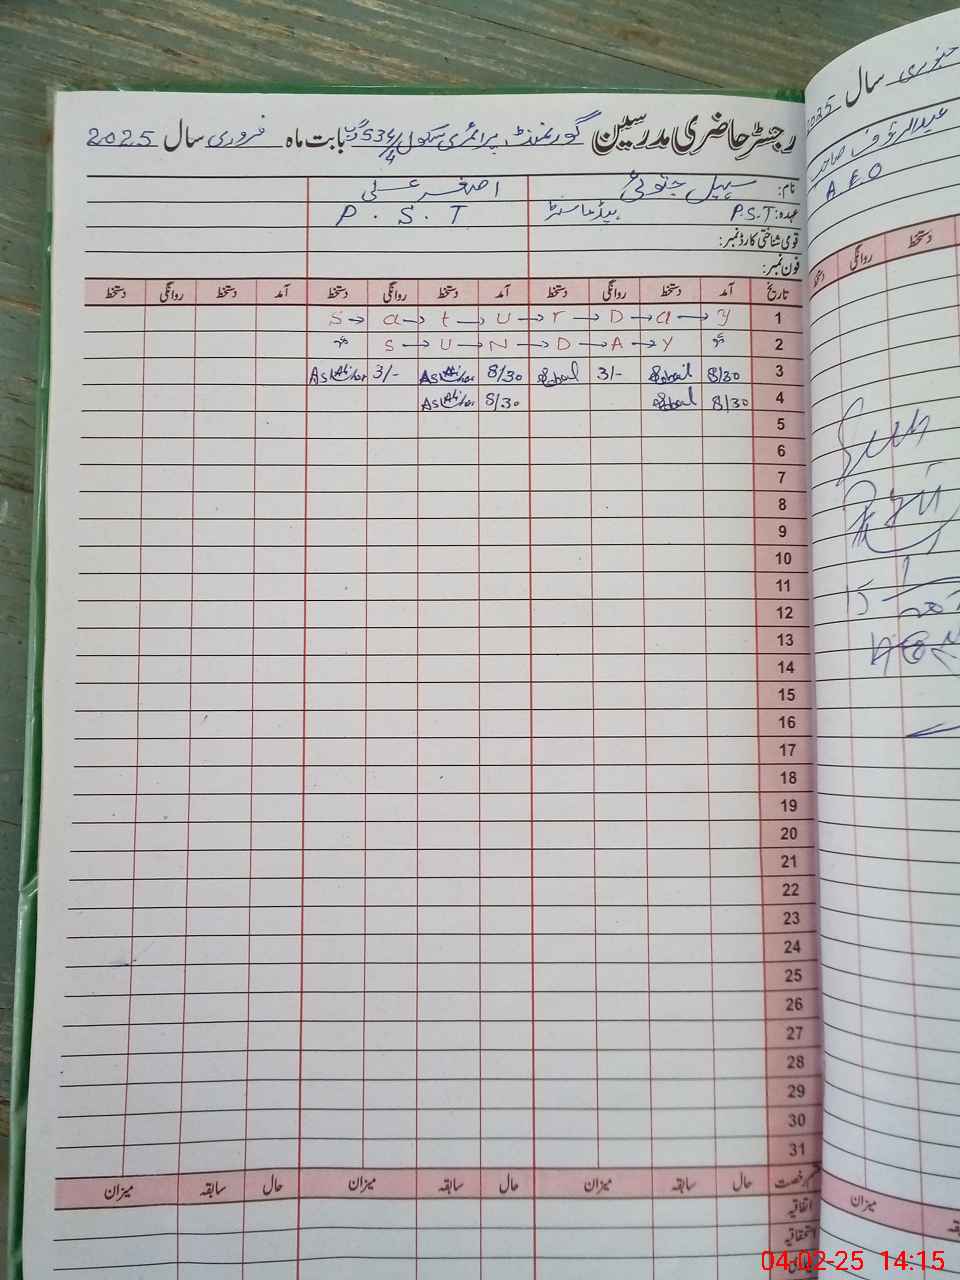 رجسٹر حاضری مدرسین گورنمنٹ پرائمری سکول 534/گ ب بابت ماہ فروری سال 2025
نام: سہیل جتوئی اصغر علی
عہدہ: P.S.T ہیڈماسٹر P . S . T
قومی شناختی کارڈ نمبر:
فون نمبر:
تاریخ آمد دستخط روانگی دستخط آمد دستخط روانگی دستخط آمد دستخط روانگی دستخط
1 S→a→t→U→r→D→a→y
2 S→U→N→D→A→Y
3 8/30 Sohail 3/- Sohail 8/30 3/-
4 8/30 Sohail 8/30
5
6
7
8
9
10
11
12
13
14
15
16
17
18
19
20
21
22
23
24
25
26
27
28
29
30
31
قسم رخصت حال سابقہ میزان حال سابقہ میزان حال سابقہ میزان
اتفاقیہ
استحقاقیہ
جنوری سال 2025
عبدالرؤف صاحب
A E O
دستخط روانگی
میزان
04-02-25 14:15